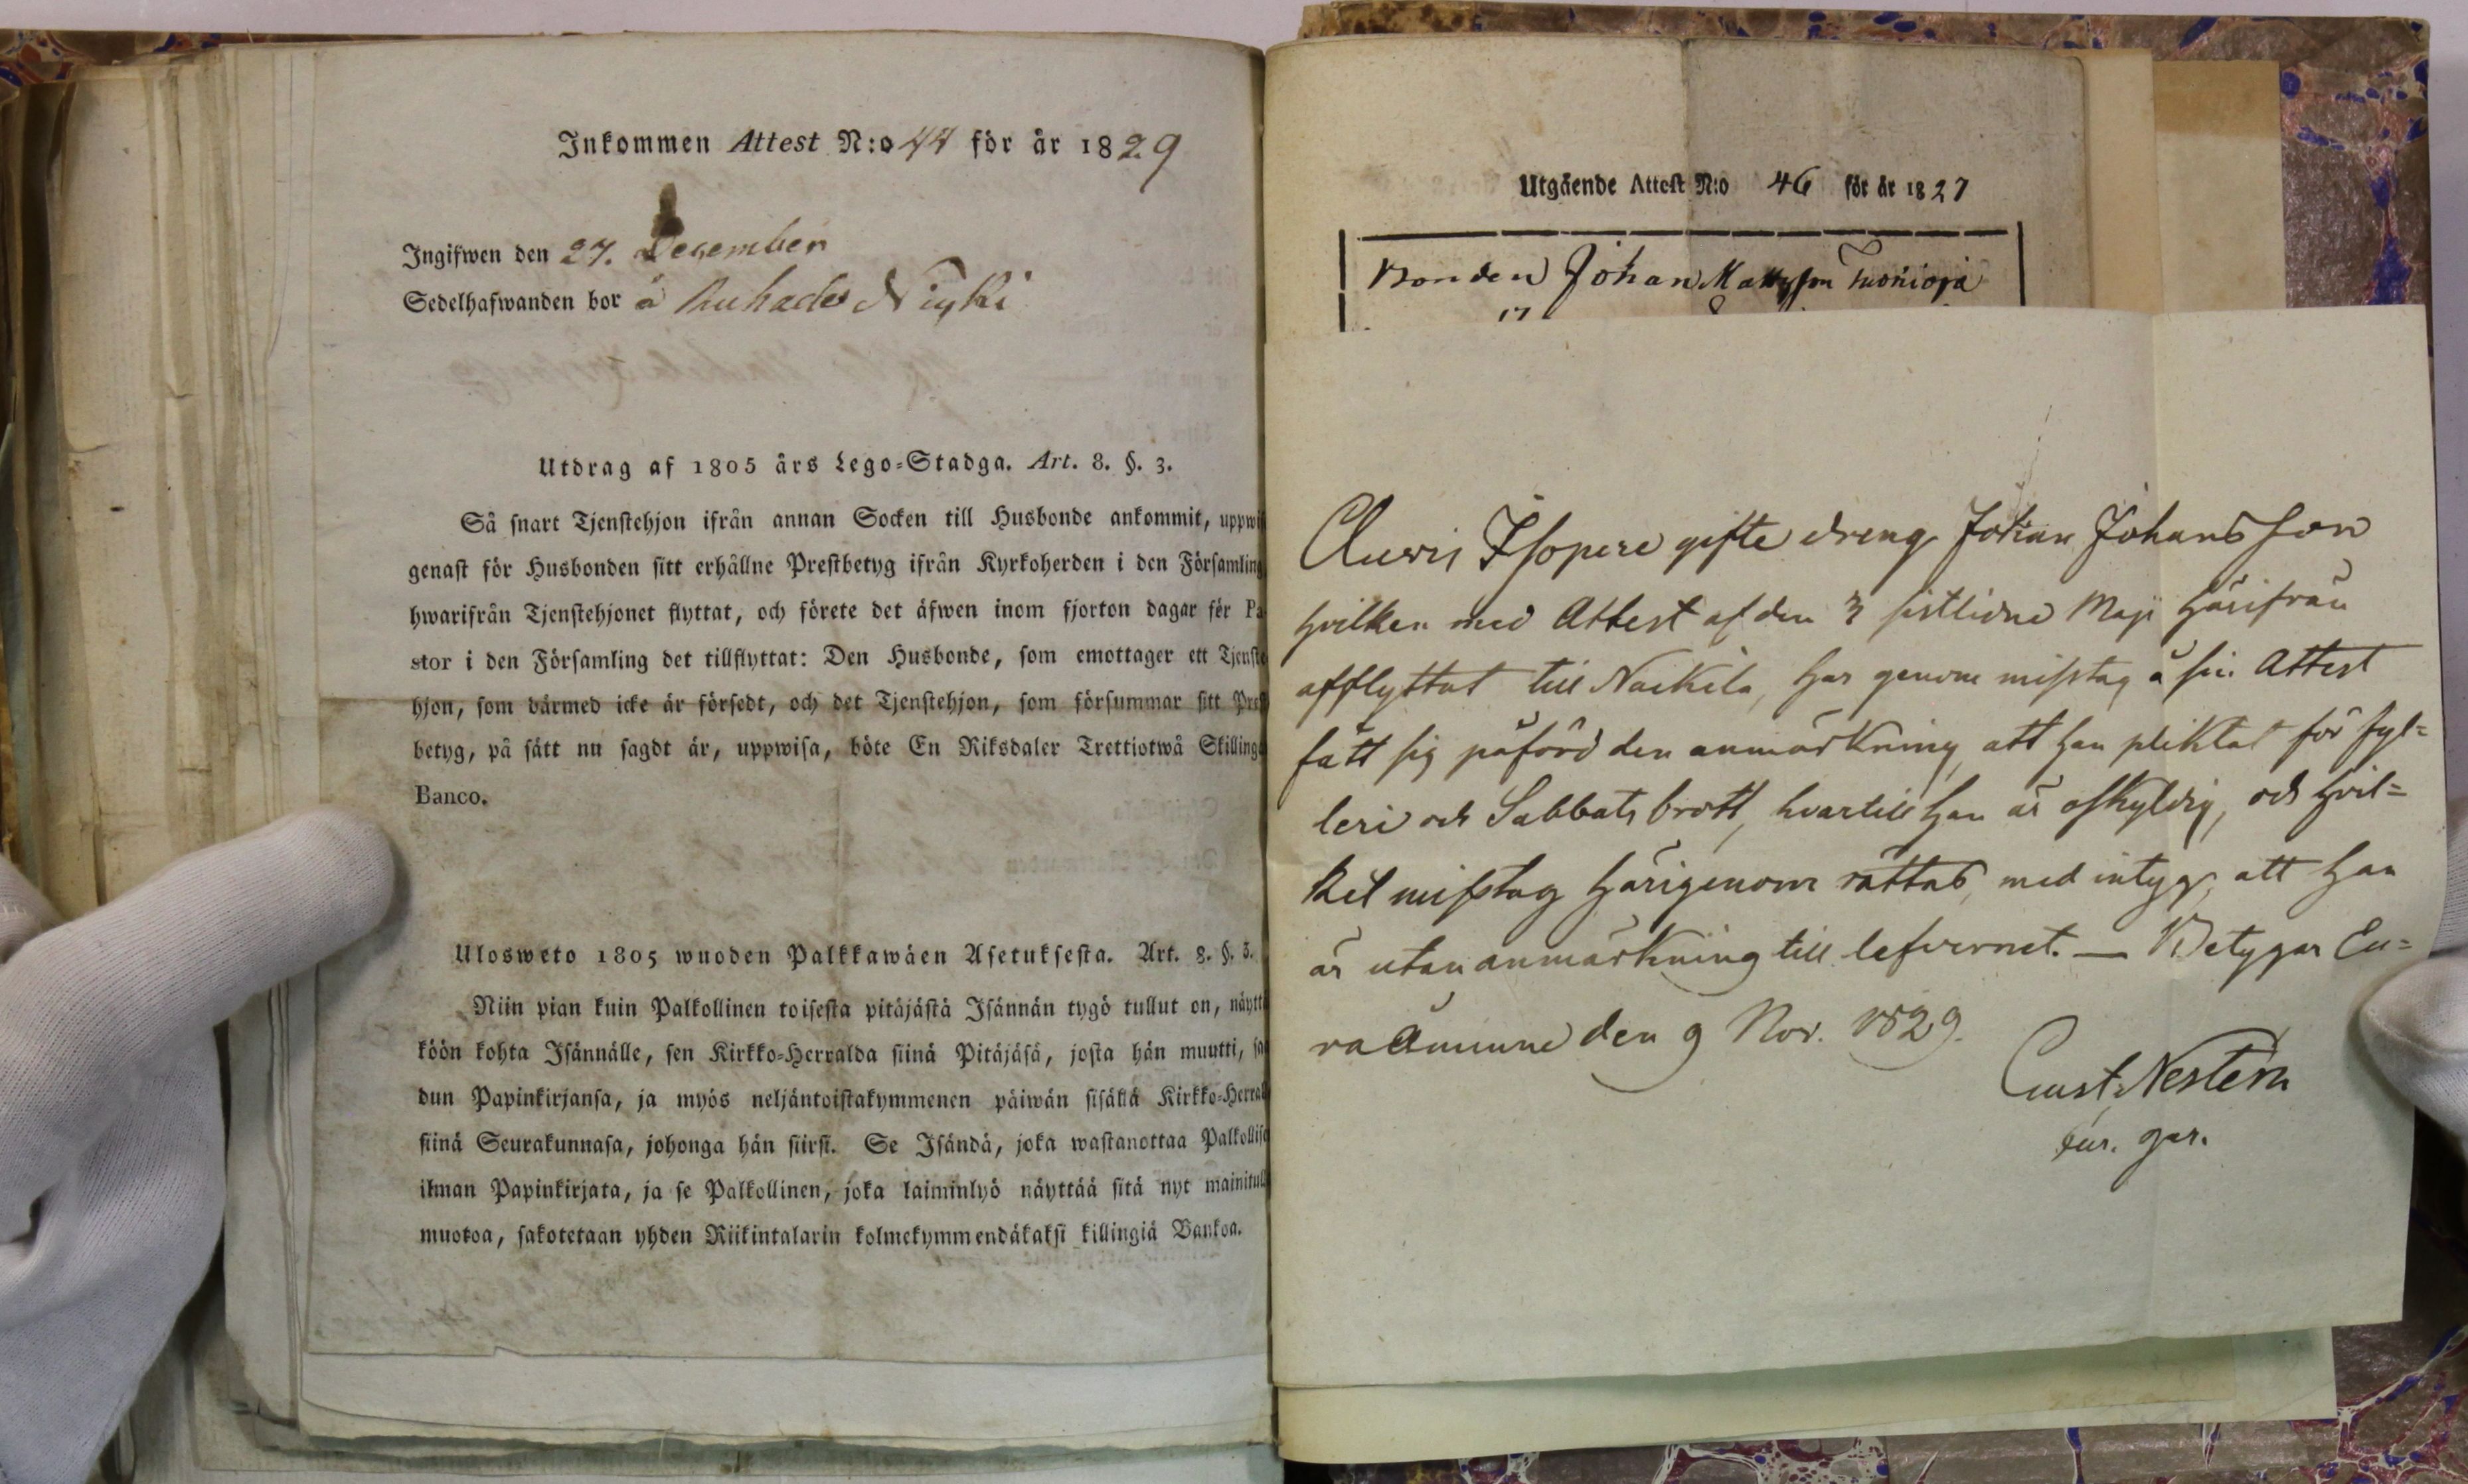 Inkommen Attest N:o 44 för år 1829
Ingifwen den 27. December
Sedelhafwanden bor å Nuhado Niyki
Utdrag af 1805 års Lego-Stadga. Art. 8. §. 3.
Så snart Tjenstehjon ifrån annan Socken till Husbonde ankommit, uppwi
genast för Husbonden sitt erhållne Prestbetyg ifrån Kyrkoherden i den Församling
hwarifrån Tjenstehjonet flyttat, och förete det äfwen inom fjorton dagar för Pa
stor i den Församling det tillflyttat: Den Husbonde, som emottager ett Tjenste
hjon, som därmed icke är försedt, och det Tjenstehjon, som försummar sitt Prest
betyg, på sätt nu sagdt är, uppwisa, böte En Riksdaler Trettiotwå Skillingar
Banco.
Ulosweto 1805 wuoden Palkkawäen Asetuksesta. Art. 8. §. 3.
Niin pian kuin Palkollinen toisesta pitäjästä Isännän tygö tullut on, näyttä
köön kohta Isännälle, sen Kirkko-Herralda siinä Pitäjäsä, josta hän muutti, sa
dun Papinkirjansa, ja myös neljäntoistakymmenen päiwän sisällä Kirkko-Herral
siinä Seurakunnasa, johonga hän siirsi. Se Isändä, joka wastanottaa Palkollise
ilman Papinkirjata, ja se Palkollinen, joka laiminlyö näyttää sitä nyt mainitulla
muotoa, sakotetaan yhden Riikintalarin kolmekymmendäkaksi killingiä Bankoa.
Utgående Attest N:o 46 för år 1827
Bonden Johan Mattsson Tuonioja
Auvis Isopere gifte dreng Johan Johansson
hvilken med Attest af den 3 sistlidne Maji härifrån
afflyttat till Nackila, har genom misstag å sin Attest
fått sig påförd den anmärkning, att han pliktat för fyl=
leri och Sabbats brott, hvartill han är oskyldig, och hvil=
ket misstag härigenom rättas, med intyg, att han
är utan anmärkning till lefvernet. — Betygar Eu=
raåminne den 9 Nov. 1829.
Gust. Nestern
fur. gar.